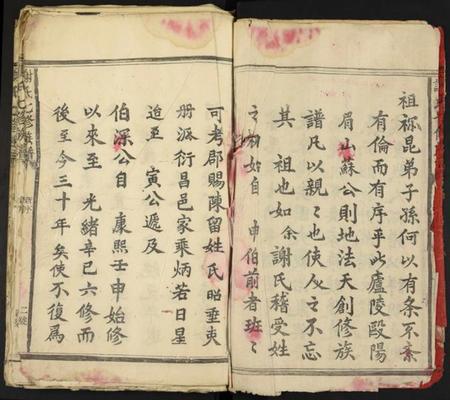 祖祢昆弟子孫何以有条不紊
有倫而有序乎此廬陵歐陽
眉山蘇公則地法天創修族
譜凡以親〻也使人之不忘
其 祖也如余謝氏稽受姓
之初始自 申伯前者班〻
可考郡賜陳留姓氏昭垂史
册派衍昌邑家乘炳若日星
迨至 寅公遞及
伯深公自 康熙壬申始修
以來至 光緒辛巳六修而
後至今三十年矣使不復爲
謝氏七修族譜